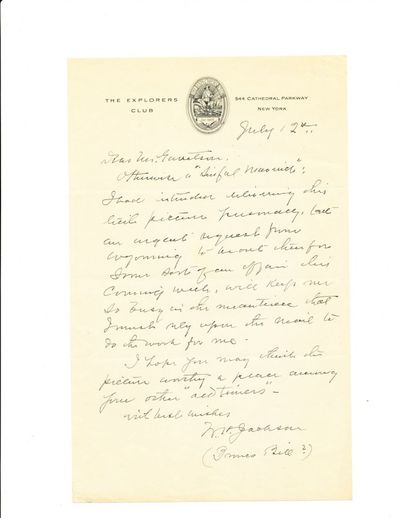 THE EXPLORERS
CLUB
544 CATHEDRAL PARKWAY
NEW YORK
July 12th
Dear Mr. Garretson,
Otherwise a "Sinful Maverick":
I had intended delivering this
little picture personally, but
an urgent request from
Wyoming to be out there for
some sort of an affair this
coming week, will keep me
so busy in the meantime that
I must rely upon the mail to
do the work for me.
I hope you may think the
picture worthy a place among
your other "old timers" -
with best wishes
W.H. Jackson
( Bill ?)